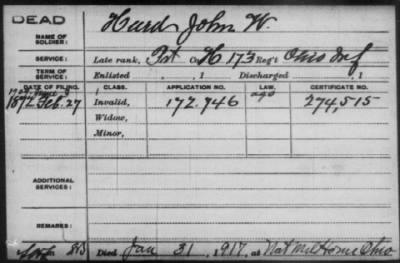 DEAD
Hurd John W.
NAME OF SOLDIER:
SERVICE: Late rank, Pvt Co H 173 Reg't Ohio Inf
TERM OF SERVICE: Enlisted , 1 Discharged , 1
DATE OF FILING. CLASS. APPLICATION NO. LAW. CERTIFICATE NO.
1872 Feb. 27 Invalid, 172,946 274,515
Widow,
Minor,
ADDITIONAL SERVICES:
REMARKS:
Died Jan 31, 1917, at Nat Mil Home Ohio